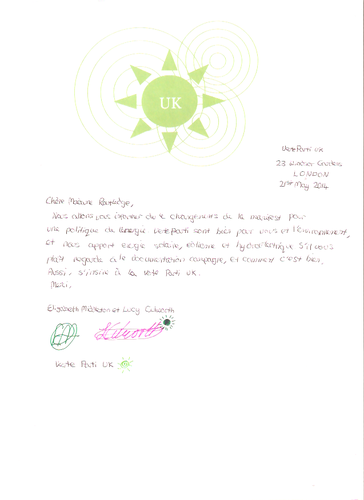 UK
VerteParti UK
23 Windsor Gardens
LONDON
21st May 2014
Chère Madame Routledge,
Nous allons vous informer de changements de la manifest pour
une politique de l'énergie VerteParti sont bien pour vous et l'environment,
et nous apport energie solaire, éolienne et hydroélectrique S'il vous
plaît regarde à le documentation compagne, et comment c'est bien.
Aussi, s'inscrire à la Verte Parti UK.
Merci.
Elizabeth et Lucy
Verte Parti UK